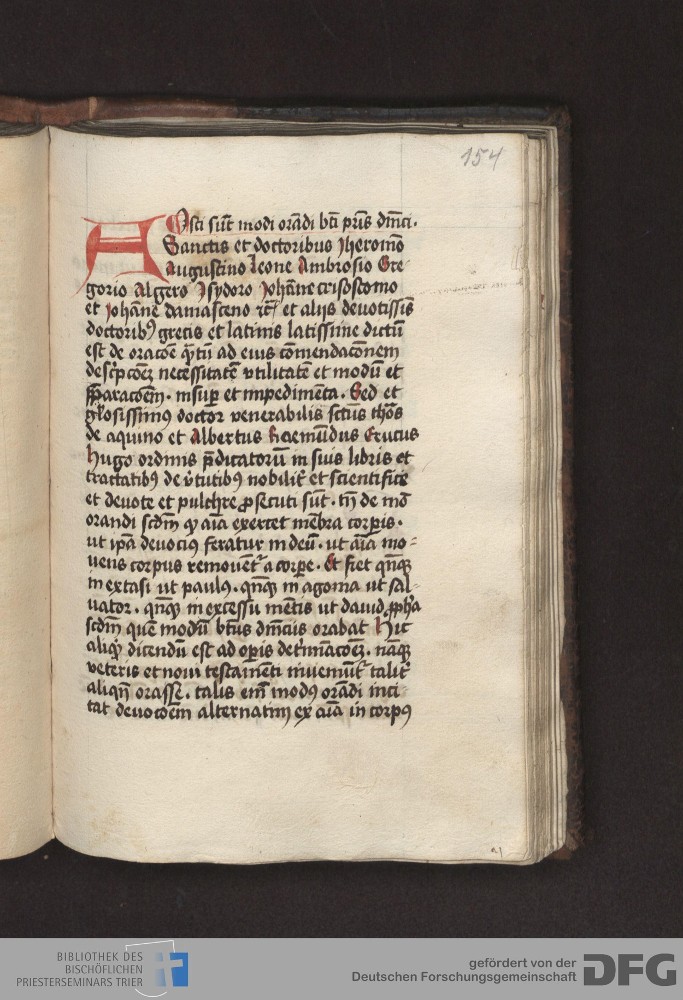 154
A Isti su͞t modi ora͞di bt͞i pr͞is dm͞ici.
Sanctis et doctoribus Jheronimo͞
Augustino Leone Ambrosio Gre
gorio Algero Jsydoro Joha͞ne crisostomo
et Joha͞ne damasceno et alijs deuotissis
doctoribꝰ grecis et latinis latissime dictu͞
est de oraco͞e ad eius co͞mendaco͞nem
necessitate͞ vtilitate͞ et modu͞ et
insup͞ et impedime͞ta. Sed et
gl͞osissimꝰ doctor venerabilis sct͞us tho͞s
de aquino et Albertus
hugo ordinis p͞dicatoru͞ in suis libris et
tractatibꝰ de v͛tutibꝰ nobilit͛ et scientifice
et deuote et pulchre ꝓsecuti su͞t. tn͞ de mo͞
orandi scd͞m qꝫ ai͞a exercet me͞bra corp͞is.
ut ip͞a deuociꝰ feratur in deu͞. ut ai͞a mo=
uens corpus remouet͛ a corp͞e. Et fiet qn͞qꝫ
in extasi ut paulꝰ. qn͞qꝫ in agonia ut sal
uator. qn͞qꝫ in excessu me͞tis ut dauid ꝓph͞a
scd͞m que͞ modu͞ bt͞us dm͞icus orabat Hic
aliqꝫ dicendu͞ est ad op͞is det͛mi͞aco͞eꝫ. na͞qꝫ
veteris et noui testame͞ti inueniu͞t͛ talit͛
aliqn͞ orasse. talis em͞ modꝰ ora͞di inci
tat deuoco͞em alternatim ex ai͞a in corpꝰ
BIBLIOTHEK DES
BISCHÖFLICHEN
PRIESTERSEMINARS TRIER
gefördert von der
Deutschen Forschungsgemeinschaft
DFG